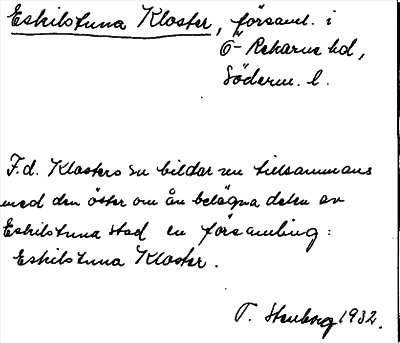 Eskilstuna Kloster, församl. i
Ö-Rekarne hd,
Söderm. l.
F.d. Klosters sn bildar nu tillsammans
med den öster om ån belägna delen av
Eskilstuna stad en församling:
Eskilstuna Kloster.
T. Stenberg 1932.